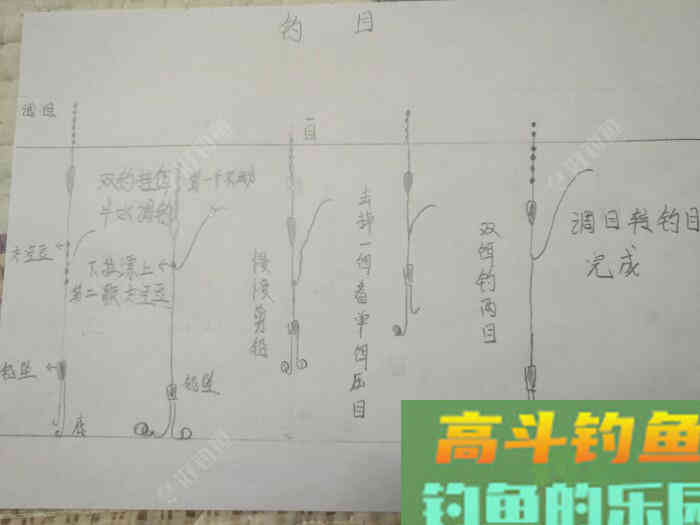 钓目
调目
一目
双钓挂饵
半水调钓
第一个不动
太空豆
下拉漂上
第二颗太空豆
铅坠
铅坠
底
慢慢剪铅
去掉一饵看单饵压目
双饵钓两目
调目转钓目
完成
高斗钓鱼
钓鱼的乐园